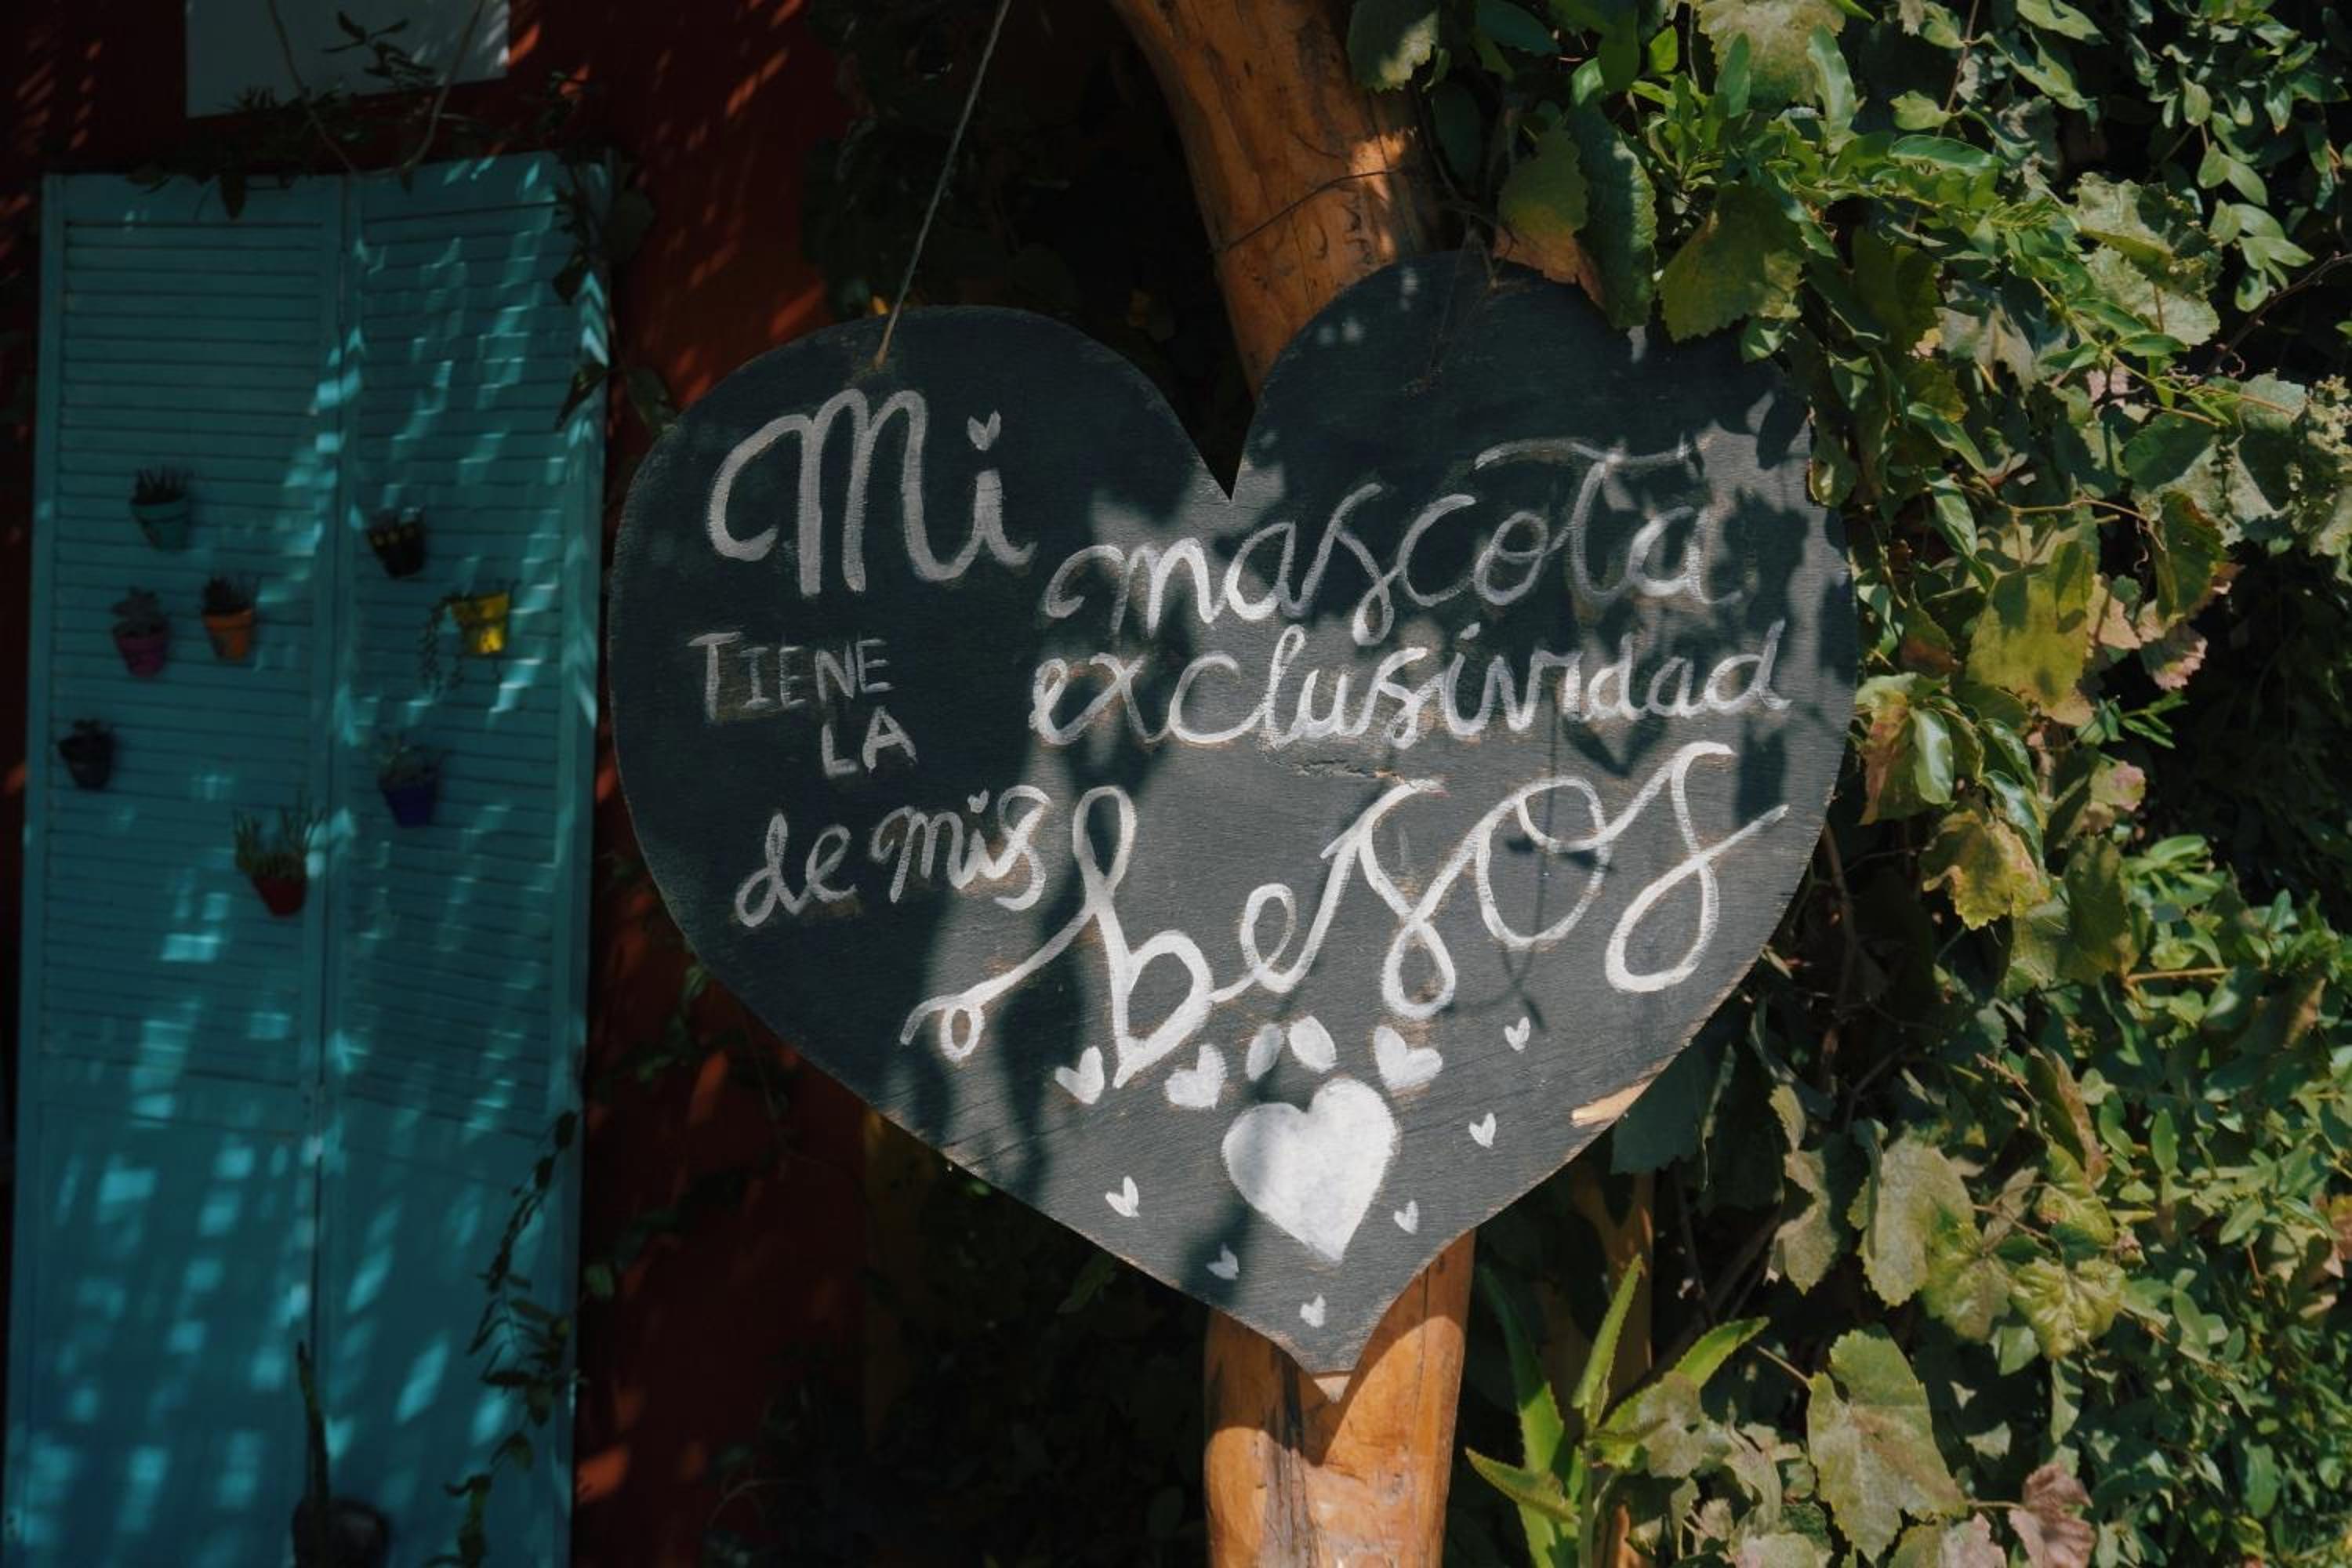 Mi mascota
TIENE LA exclusividad
de mis besos